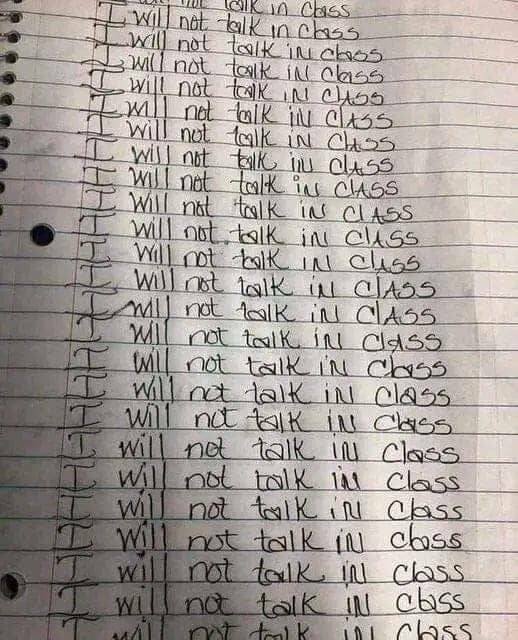 not talk in Class
I will not talk in Class
I will not talk iN class
I will not talk iN Class
I will not talk iN ClASS
I will not talk iN ClASS
I will not talk iN ClASS
I will not talk iN ClASS
I will not talk iN ClASS
I will not talk iN ClASS
I will not talk iN ClASS
I will not talk iN ClASS
I will not talk iN ClASS
I will not talk iN ClASS
I will not talk iN Class
I will not talk iN Class
I will not talk iN Class
I will not talk iN Class
I will not talk iN Class
I will not talk iN Class
I will not talk iN Class
I will not talk iN Class
I will not talk iN Class
I will not talk iN Class
will not talk iN Class